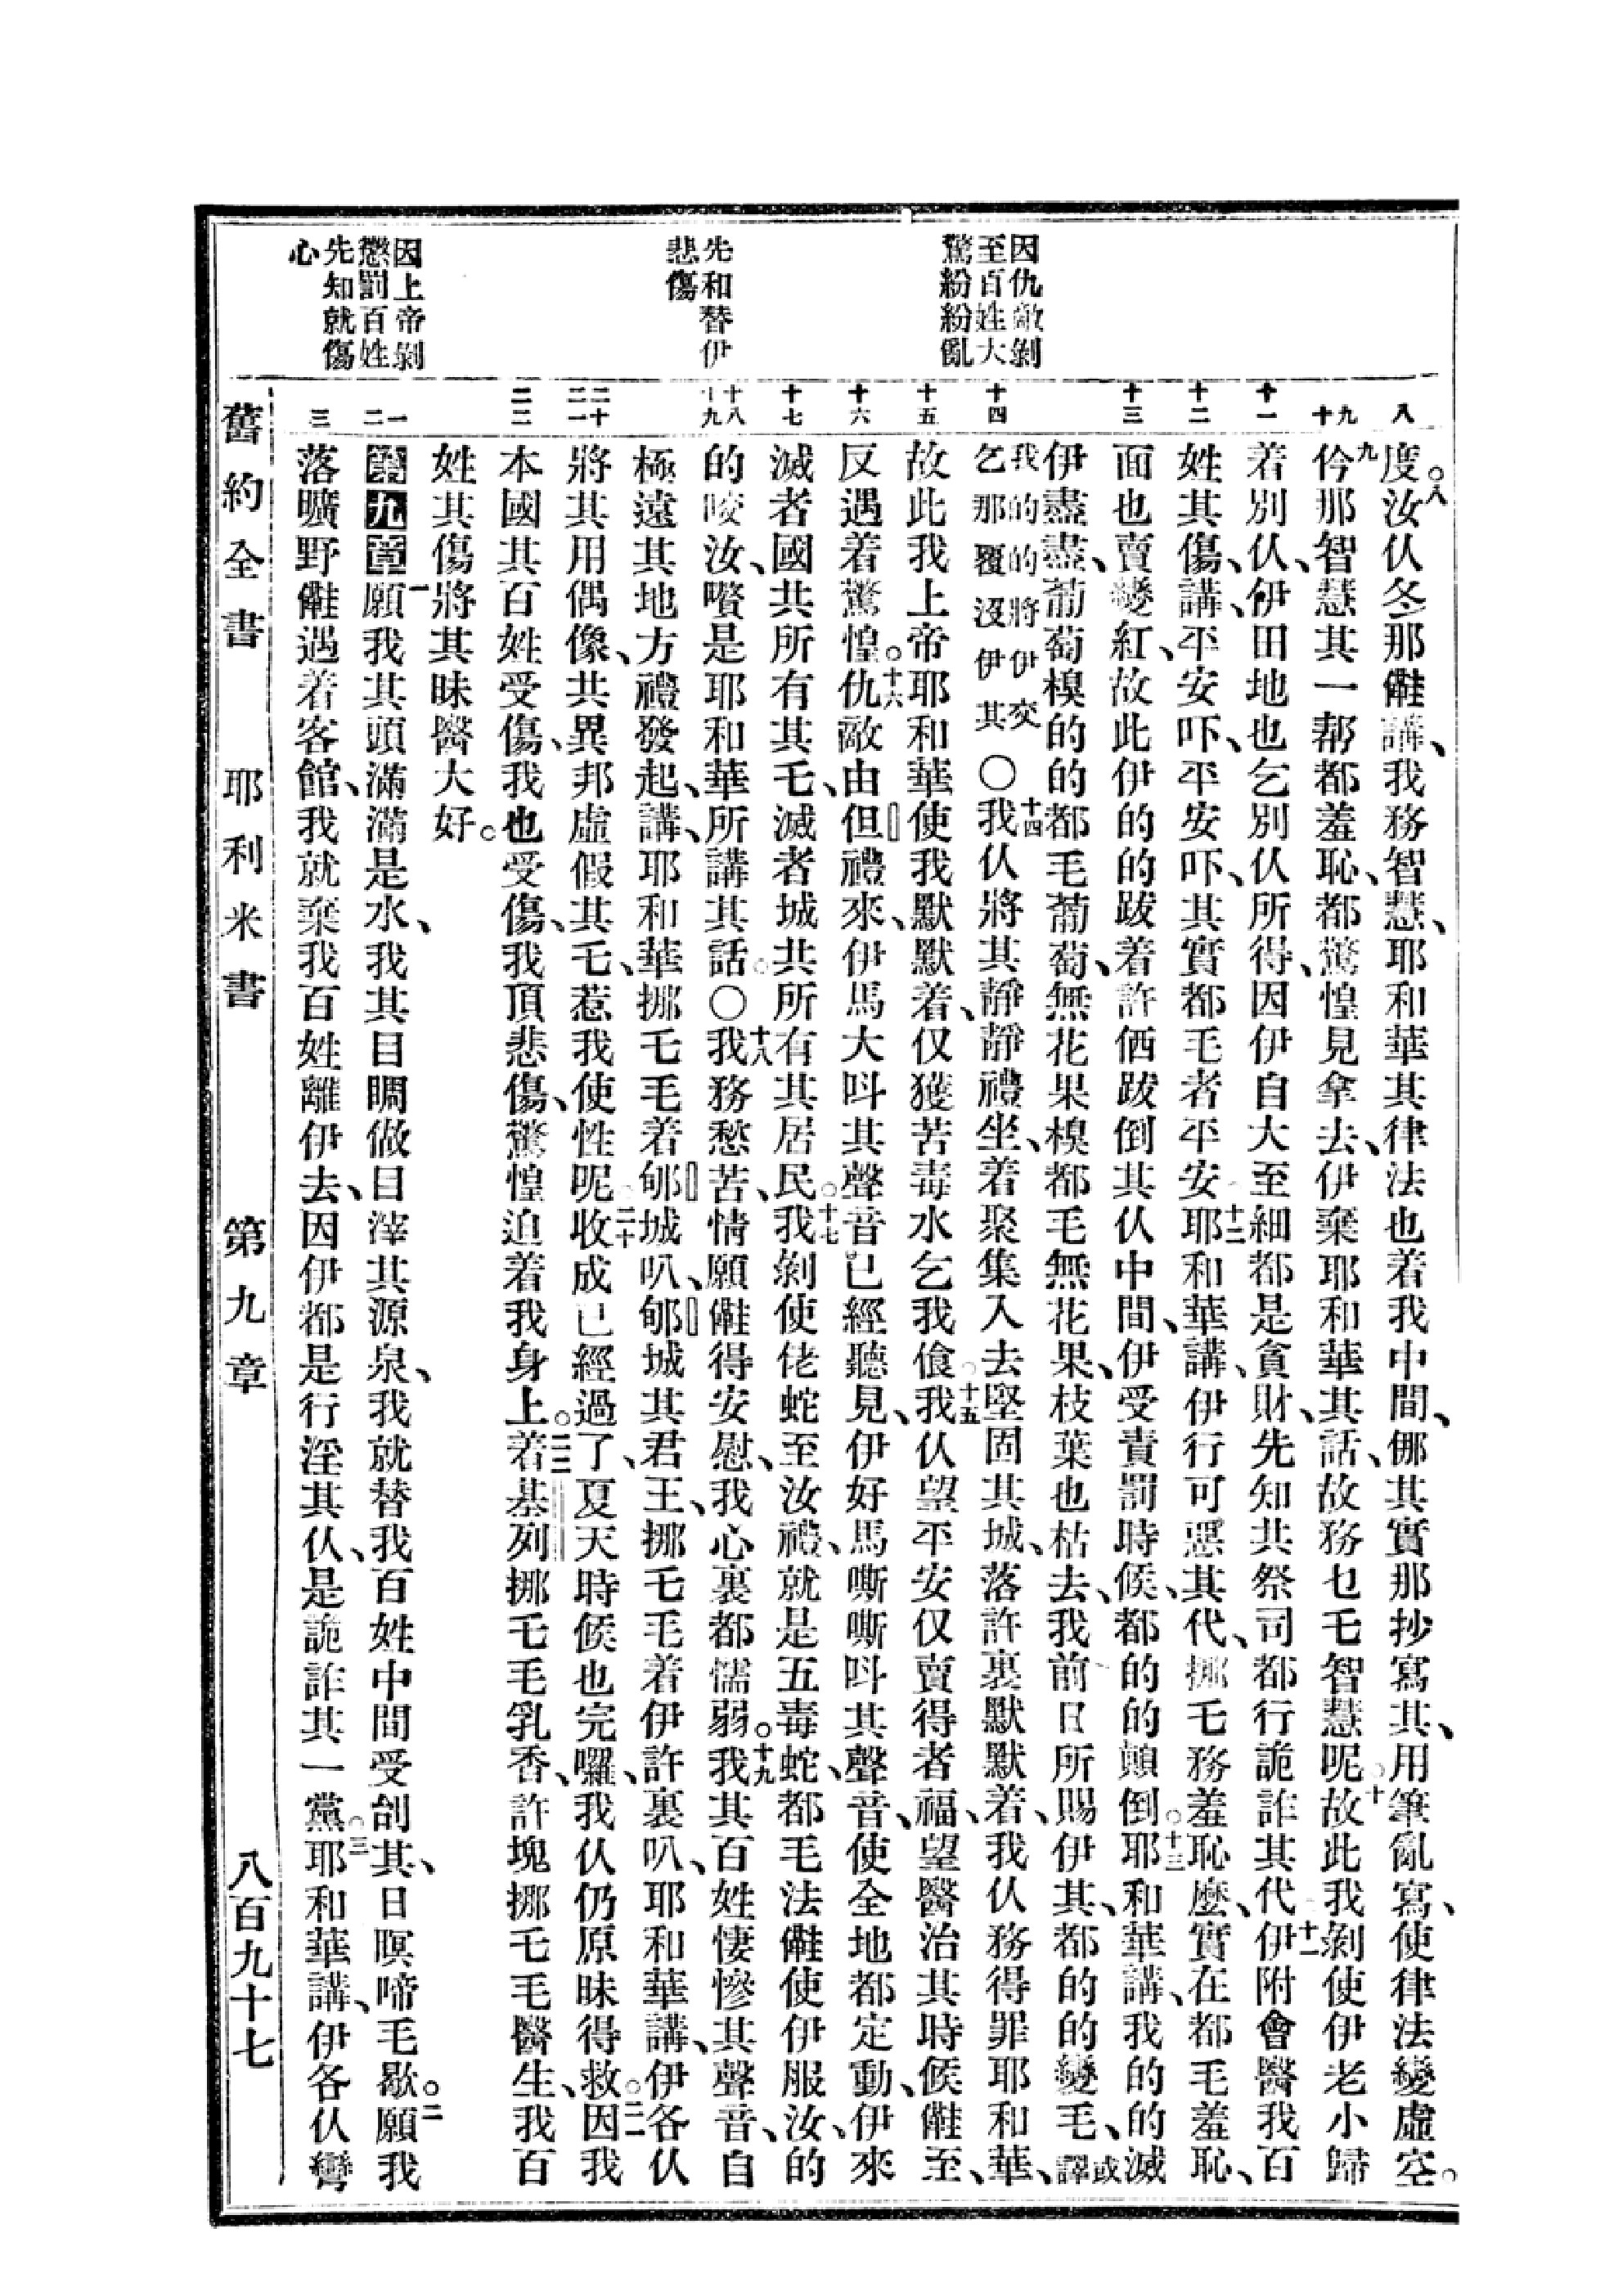 因仇敵剝
至百姓大
驚紛紛亂
先和替伊
悲傷
因上帝剝
懲罰百姓
先知就傷
心
八
九
十
十一
十二
十三
十四
十五
十六
十七
十八
十九
二十
二一
二二
一
二
三
度。八汝仈冬那儺講、我務智慧、耶和華其律法也着我中間、倻其實那抄寫其、用筆亂寫、使律法變虛空。
九仱那智慧其一幫都羞恥、都驚惶見拿去、伊棄耶和華其話、故務乜毛智慧呢。十故此我剝使伊老小歸
着別仈、伊田地也乞別仈所得、因伊自大至細都是貪財、先知共祭司都行詭詐其代。十一伊附會醫我百
姓其傷、講、平安吓、平安吓、其實都毛者平安。十二耶和華講、伊行可惡其代、挪乇務羞恥麼、實在都毛羞恥、
面也賣變紅、故此伊的的跋着許伵跋倒其仈中間、伊受責罰時候、都的的顛倒。十三耶和華講、我的的滅
伊盡盡、葡萄模的的都毛葡萄、無花果模都毛無花果、枝葉也枯去、我前日所賜伊其、都的的變毛、或譯
我的的將伊交乞那覆沒伊其〇十四我仈將其靜靜禮坐、着聚集入去堅固其城、落許裏默默着、我仈務得罪耶和華、
故此我上帝耶和華使我默默着、仅獲苦毒水乞我飡。十五我仈望平安仅賣得者福、望醫治其時候儺至、
反遇着驚惶。十六仇敵由但禮來、伊馬大呌其聲音、已經聽見、伊好馬嘶嘶呌其聲音、使全地都定動、伊來
滅者國共所有其乇、滅者城共所有其居民。十七我剝使佬蛇至汝禮、就是五毒蛇、都毛法儺使伊服汝、的
的咬汝、嚽是耶和華所講其話。〇十八我務愁苦、情願儺得安慰、我心裏都懦弱。十九我其百姓悽慘其聲音、自
極遠其地方禮發起、講、耶和華挪乇毛着郇城叭、郇城其君王、挪乇毛着伊許裏叭、耶和華講、伊各仈
將其用偶像、共異邦虛假其乇、惹我使性呢。二十收成已經過了、夏天時候也完囉、我仈仍原昧得救。二一因我
本國其百姓受傷、我也受傷、我頂悲傷、驚惶迫着我身上。二二着基列挪乇毛乳香、許塊挪乇毛醫生、我百
姓其傷將其昧醫大好。
第九章一願我其頭滿滿是水、我其目睭做目滓其源泉、我就替我百姓中間受刣其、日暝啼毛歇。二願我
落曠野儺遇着客館、我就棄我百姓離伊去、因伊都是行淫其仈、是詭詐其一黨。三耶和華講、伊各仈彎
舊約全書 耶利米書 第九章 八百九十七